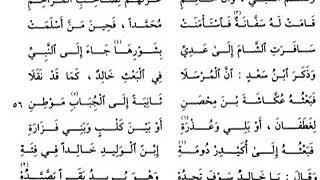 قَامَتْ لَهُ سَفَّانَةٌ فَاسْتَأْمَنَتْ مُحَمَّداً، فَحِينَ مَنَّ أَسْلَمَتْ
سَافَرَتِ الشَّامَ إِلَى عَدِيِّ بِشَوْرِهَا جَاءَ إِلَى النَّبِيِّ
وَذَكَرَ ابْنُ سَعْدٍ: أَنَّ الْمُرْسَلَا فِي الْبَعْثِ خَالِدٌ، كَمَا قَدْ نَقَلَا
فَبَعْثُهُ عُكَّاشَةَ بْنَ مِحْصَنِ ثَانِيَةً إِلَى الْجُبَابِ مَوْطِنِ ٥٦
لِغَطَفَانَ، أَوْ بَلِي وَعُذْرَةِ أَوْ بَيْنَ كَلْبٍ وَبَنِي فَزَارَةِ
فَبَعْثُهُ إِلَى أُكَيْدِرِ دُومَةِ إِبْنَ الْوَلِيدِ خَالِداً فِي فِئَةِ
وَقَالَ: يَا خَالِدُ سَوْفَ تَجِدُهْ وَهْوَ يُرِيدُ بَقَراً يَصَّيَّدُهْ